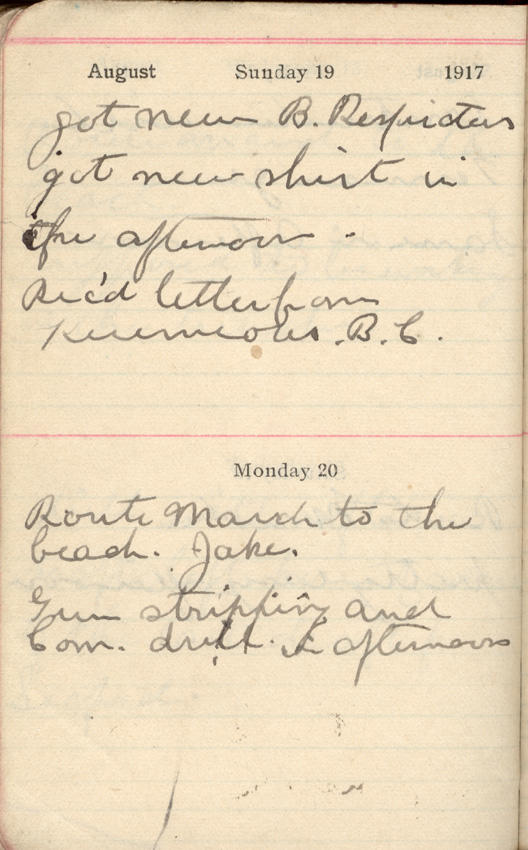 August Sunday 19 1917
got new B. Respirators
got new shirt in
the afternoon -
Rec'd letter from
Keremeos. B. C.
Monday 20
Route March to the
beach. Jake.
Gun stripping and
Com. drill. in afternoon